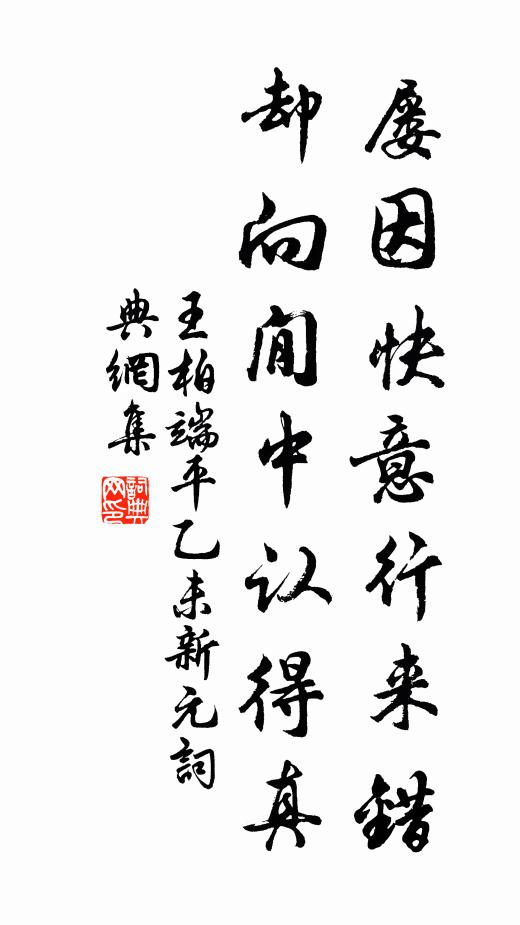 屡因快意行来錯
却向閒中认得真
王柏端平乙未新元詞
典網集
詞典网印